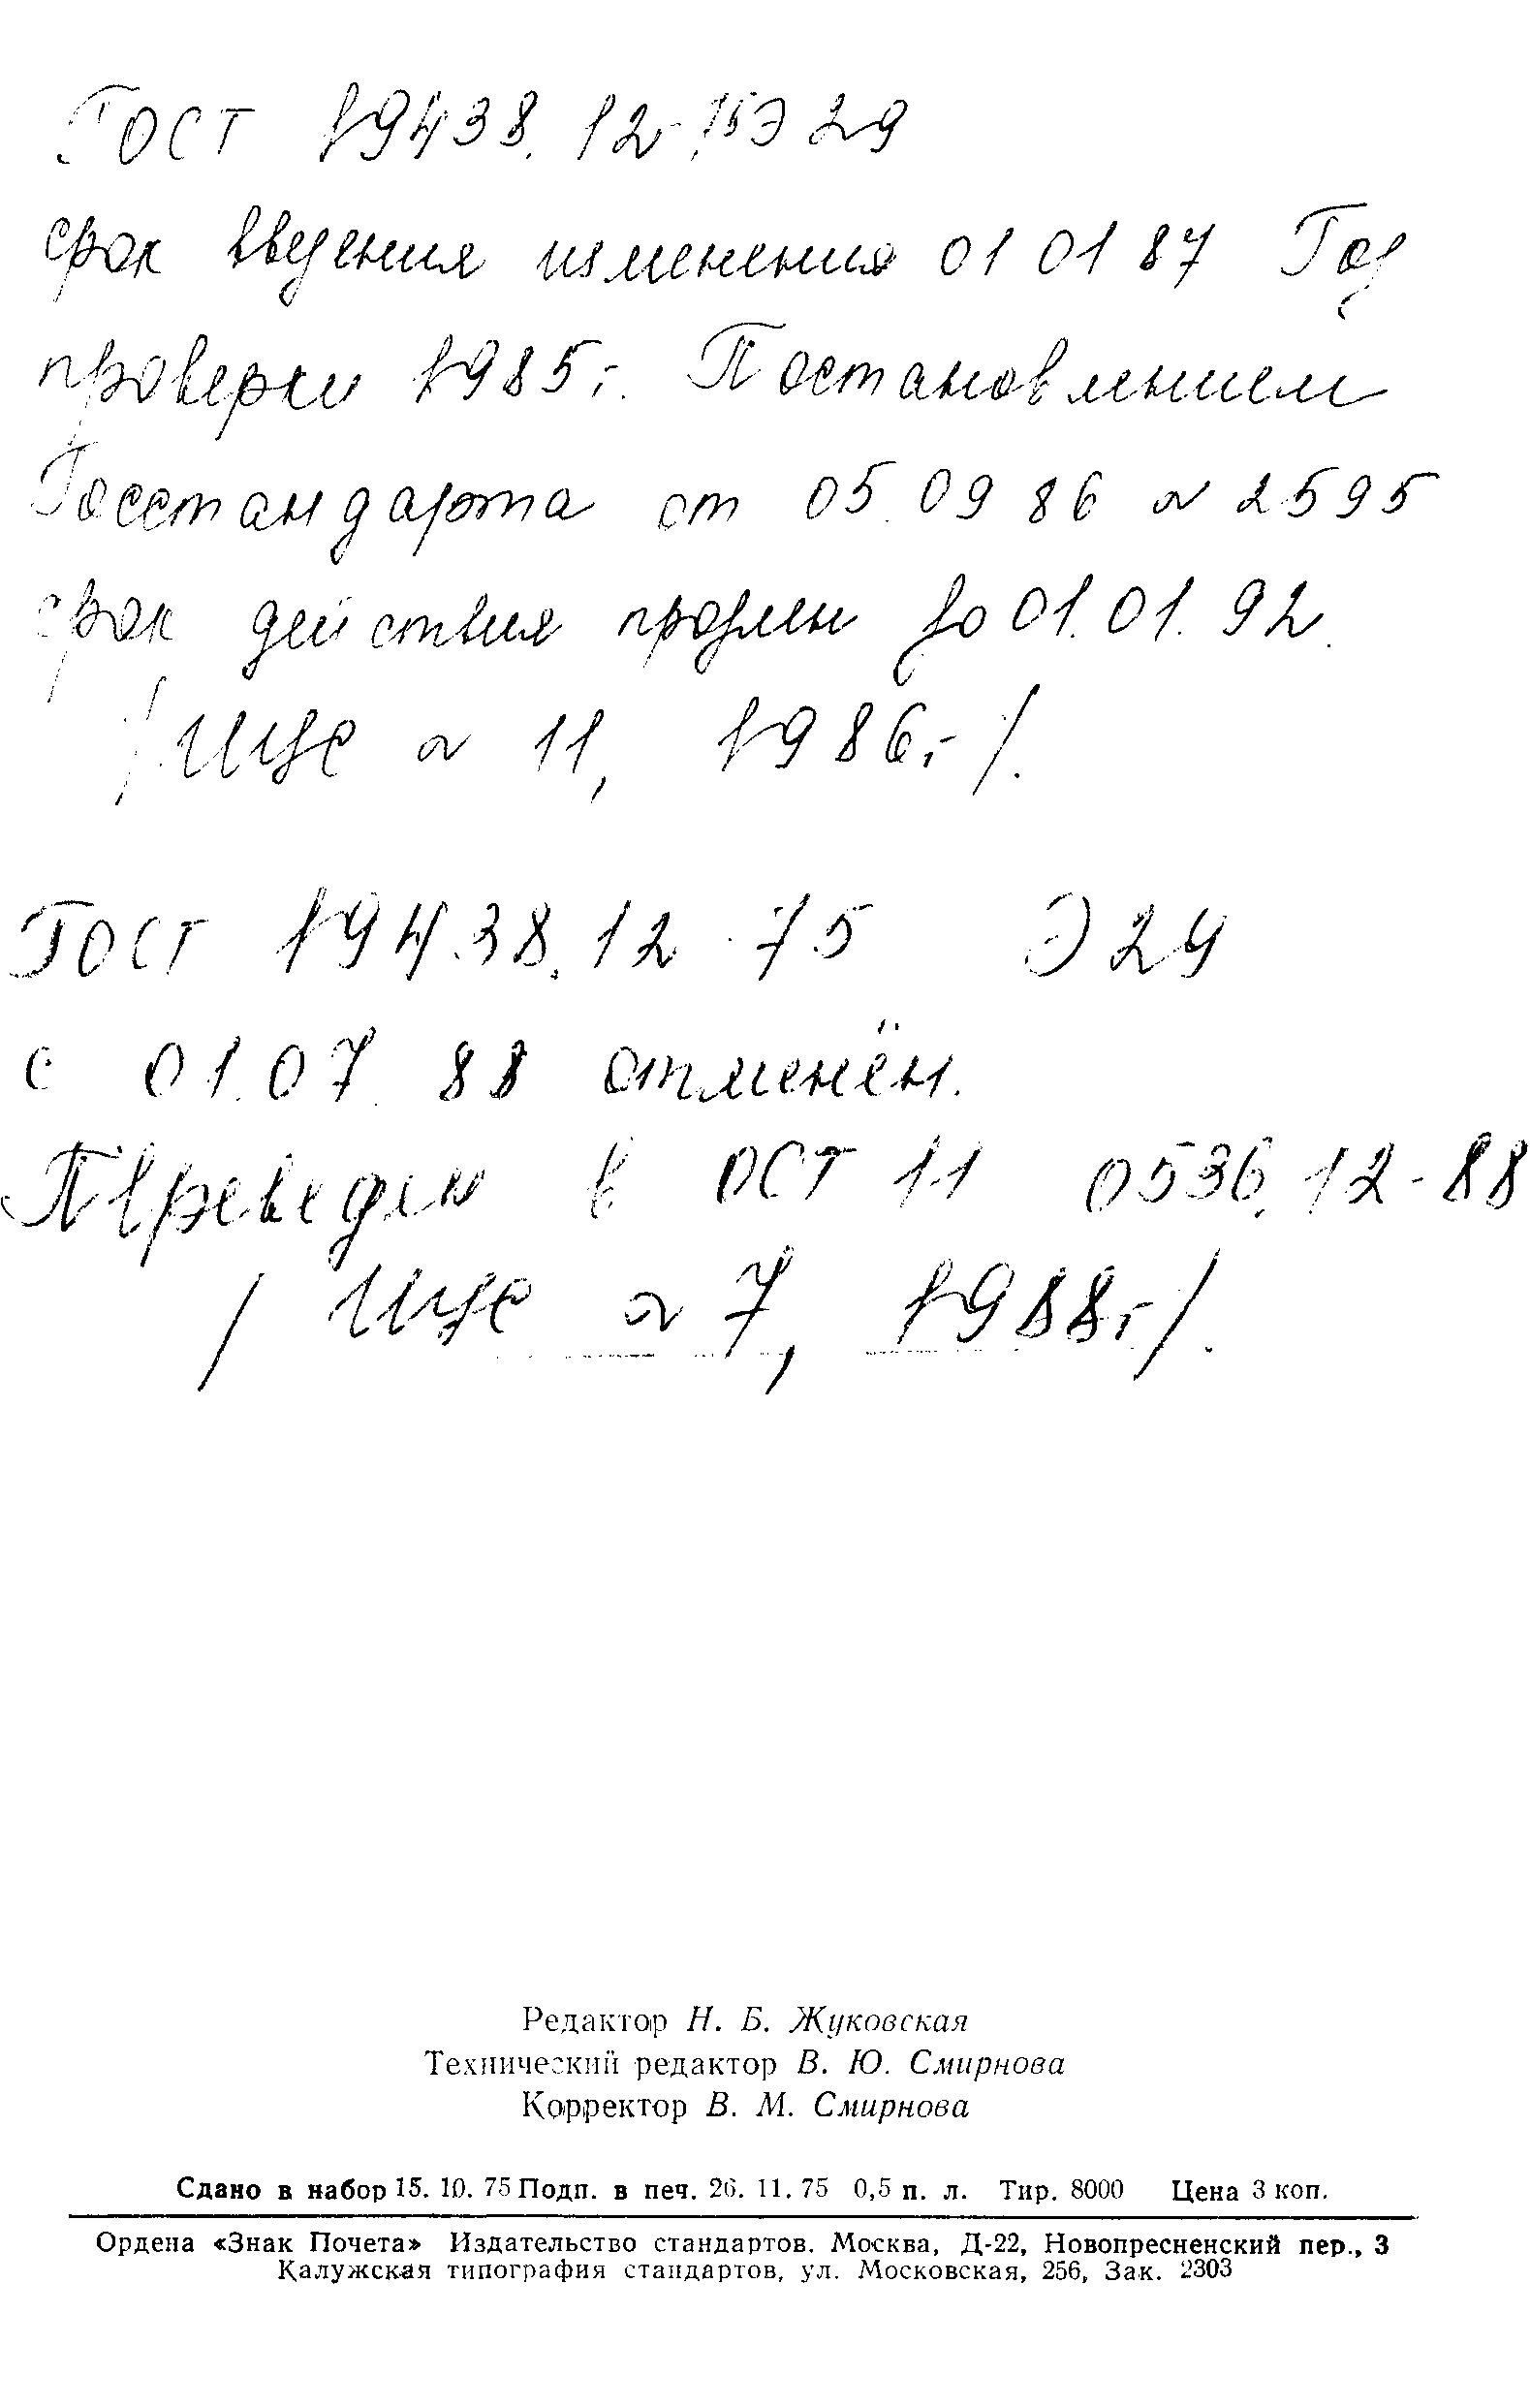 ГОСТ 19438.12-75 Э29
срок введения изменения 01 01 87 Год
проверки 1985г. Постановлением
Госстандарта от 05.09 86 № 2595
срок действия продлен до 01.01.92.
/ИУС № 11, 1986г/.
ГОСТ 19438.12-75 Э29
с 01.07 88 отменён.
Переведен в ОСТ 11 0536.12-88
/ИУС № 7, 1988г/.
Редактор Н. Б. Жуковская
Технический редактор В. Ю. Смирнова
Корректор В. М. Смирнова
Сдано в набор 15. 10. 75 Подп. в печ. 26. 11. 75 0,5 п. л. Тир. 8000 Цена 3 коп.
Ордена «Знак Почета» Издательство стандартов. Москва, Д-22, Новопресненский пер., 3
Калужская типография стандартов, ул. Московская, 256, Зак. 2303